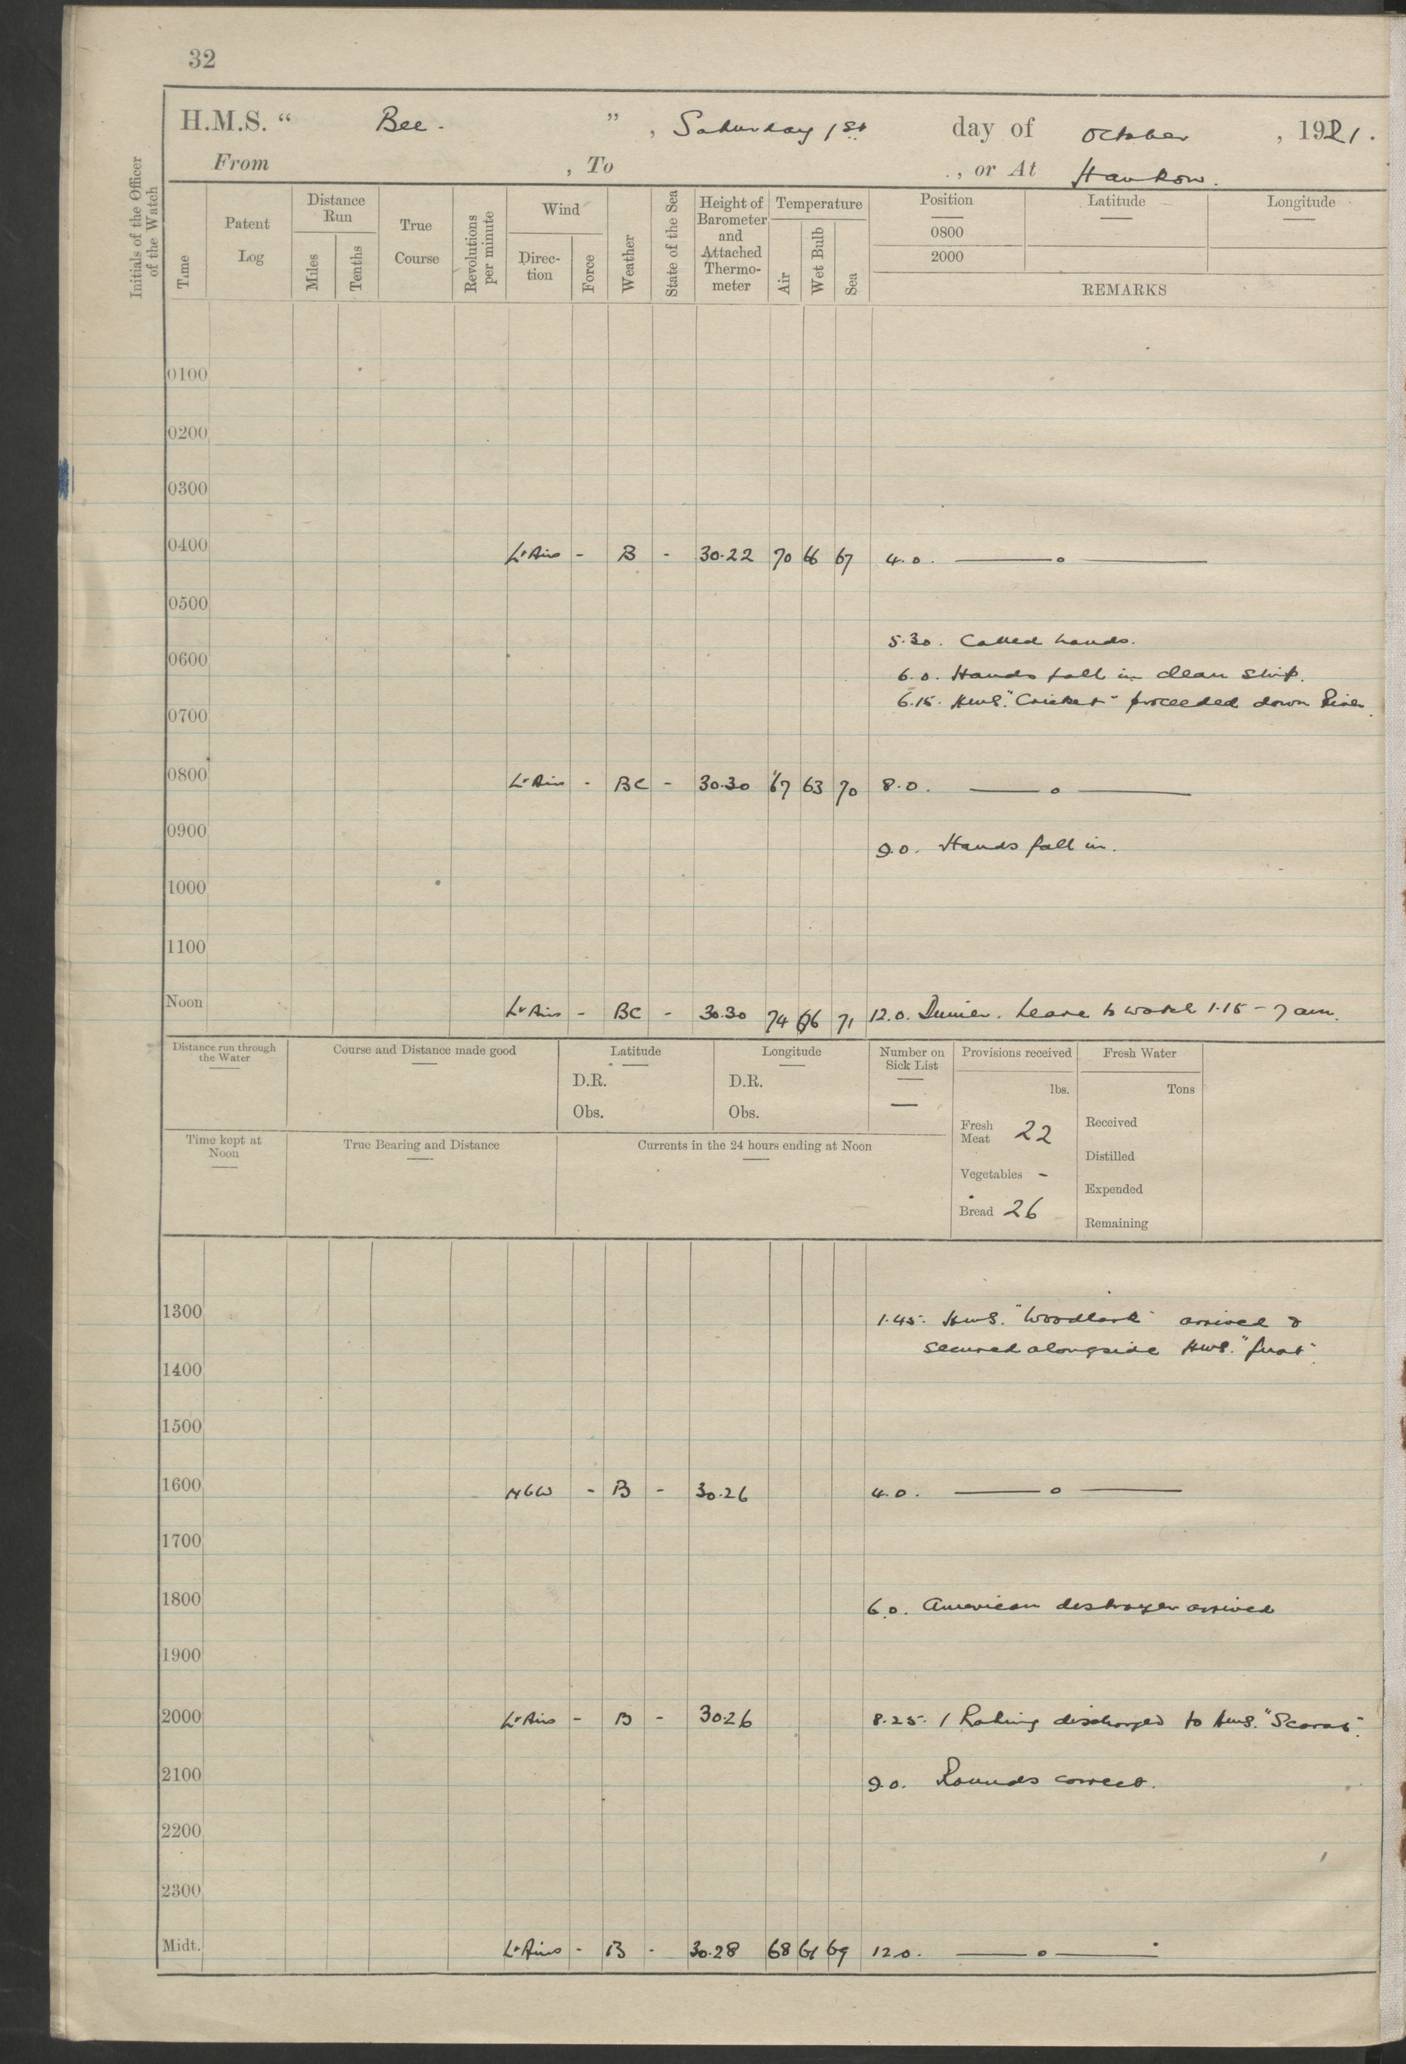 32
H.M.S. " Bee. ", Saturday 1st day of October, 1921.
From , To , or At Hankow.
Initials of the Officer of the Watch
Time
Patent Log
Distance Run
Miles
Tenths
True Course
Revolutions per minute
Wind
Direction
Force
Weather
State of the Sea
Height of Barometer and Attached Thermometer
Temperature
Air
Wet Bulb
Sea
Position
0800
2000
Latitude
Longitude
REMARKS
0100
0200
0300
0400 Lt Airs - B - 30.22 70 66 67 4.0. ——o——
0500
5.30. Called hands.
0600
6.0. Hands fall in clean ship.
6.15. H.M.S. "Cricket" proceeded down River.
0700
0800 Lt Airs - BC - 30.30 67 63 70 8.0. ——o——
0900
9.0. Hands fall in.
1000
1100
Noon Lt Airs - BC - 30.30 74 66 71 12.0. Dinner. Leave to watch 1.15 - 7 am.
Distance run through the Water
Course and Distance made good
Latitude
D.R.
Obs.
Longitude
D.R.
Obs.
Number on Sick List
—
Provisions received
lbs.
Fresh Meat 22
Vegetables -
Bread 26
Fresh Water
Tons
Received
Distilled
Expended
Remaining
Time kept at Noon
True Bearing and Distance
Currents in the 24 hours ending at Noon
1300
1.45. H.M.S. "Woodlark" arrived &
secured alongside H.M.S. "Gnat".
1400
1500
1600 NbW - B - 30.26 4.0. ——o——
1700
1800
6.0. American destroyer arrived
1900
2000 Lt Airs - B - 30.26 8.25. 1 Rating discharged to H.M.S. "Scarab".
2100
9.0. Rounds correct.
2200
2300
Midt. Lt Airs - B - 30.28 68 61 69 12.0. ——o——